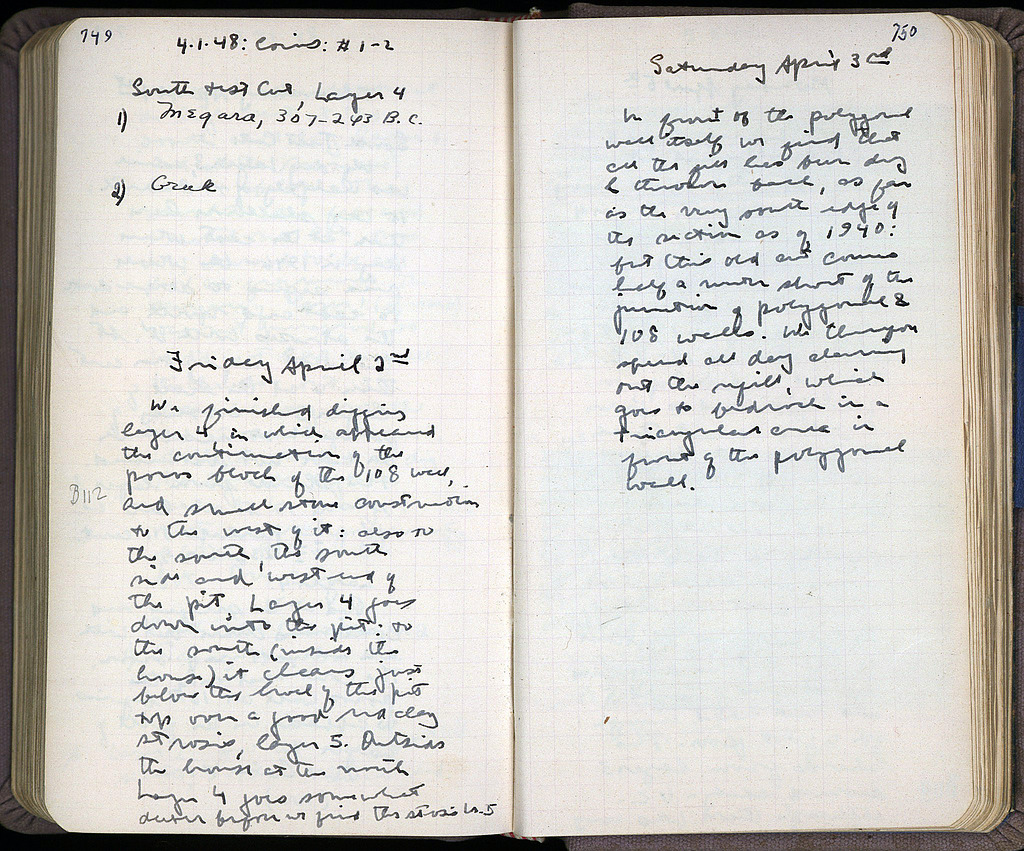 749
4.1.48: Coins: #1-2
South test Cut, Layer 4
1) Megara, 307-243 B.C.
2) Greek
Friday April 2nd
We finished digging
layer 4, in which appeared
the continuation of the
poros block of the 108 wall,
B112
and small stone construction
to the west of it: also to
the south, the south
side and west end of
the pit. Layer 4 goes
down into the pit: to
the south (inside the
house) it cleans just
below the level of the pit
top over a good red clay
strosis, layer 5. Outside
the house at the north
Layer 4 goes somewhat
deeper before we find the strosis La. 5
750
Saturday April 3rd
In front of the polygonal
wall itself we find that
all the fill has been dug
& thrown back, as far
as the very south edge of
the section as of 1940:
but this old cut comes
half a meter short of the
junction of polygonal &
108 walls. We therefore
spend all day cleaning
out the refill, which
goes to bedrock in a
triangular area in
front of the polygonal
wall.